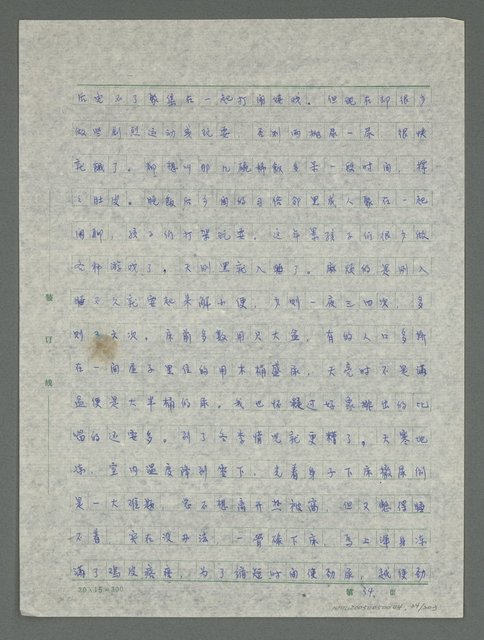 后免不了聚集在一起打闹嬉戏。但现在却很少
做些剧烈运动或玩耍，否则两泡尿一尿，很快
就饿了。都想叫那几碗稀饭多呆一段时间，撑
撑肚皮。晚饭后乡间的习俗邻里成人聚在一起
闲聊，孩子们打架玩耍，这年景孩子们很少做
这种游戏了。天刚黑就入睡了。麻烦的是刚入
睡不久就要起来解小便，少则一夜三四次，多
则 大次。床前多数用只大盆，有的人口多挤
在一间屋子里住的用木桶盛尿，天亮时不是满
盆便是大半桶的尿。我也怀疑过好象排出的比
喝的还要多。到了冬季情况就更糟了。天寒地
冻，室内温度降到零下，光着身子下床撒尿倒
是一大难题，谁不想离开热被窝，但又憋得睡
不着，实在没办法，一骨碌下床，马上浑身冻
满了鸡皮疙瘩，为了缩短时间使劲尿，越使劲
装订线
20×15=300
第 34 页